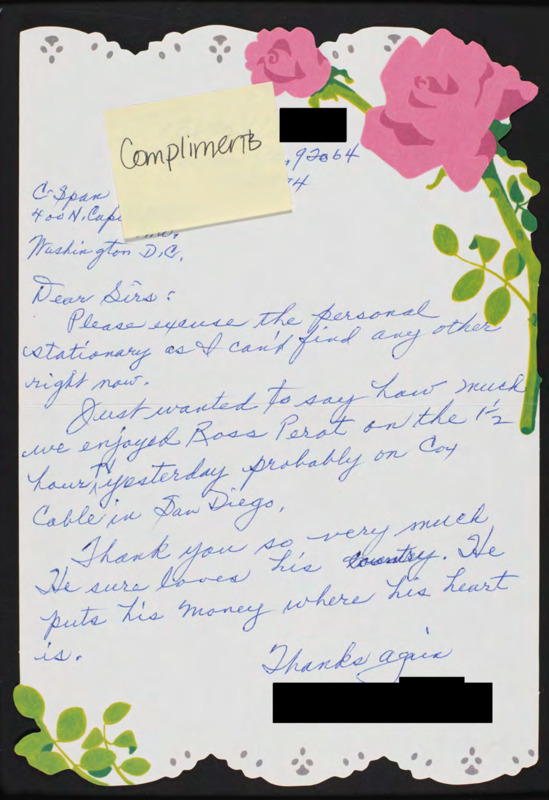 Compliments
, 92064
C-Span
400 N. Cap
Washington D.C.
Dear Sirs:
Please excuse the personal
stationary as I can't find any other
right now.
Just wanted to say how much
we enjoyed Ross Perot on the 1½
hour yesterday probably on Cox
Cable in San Diego.
Thank you so very much
He sure loves his country. He
puts his money where his heart
is.
Thanks again